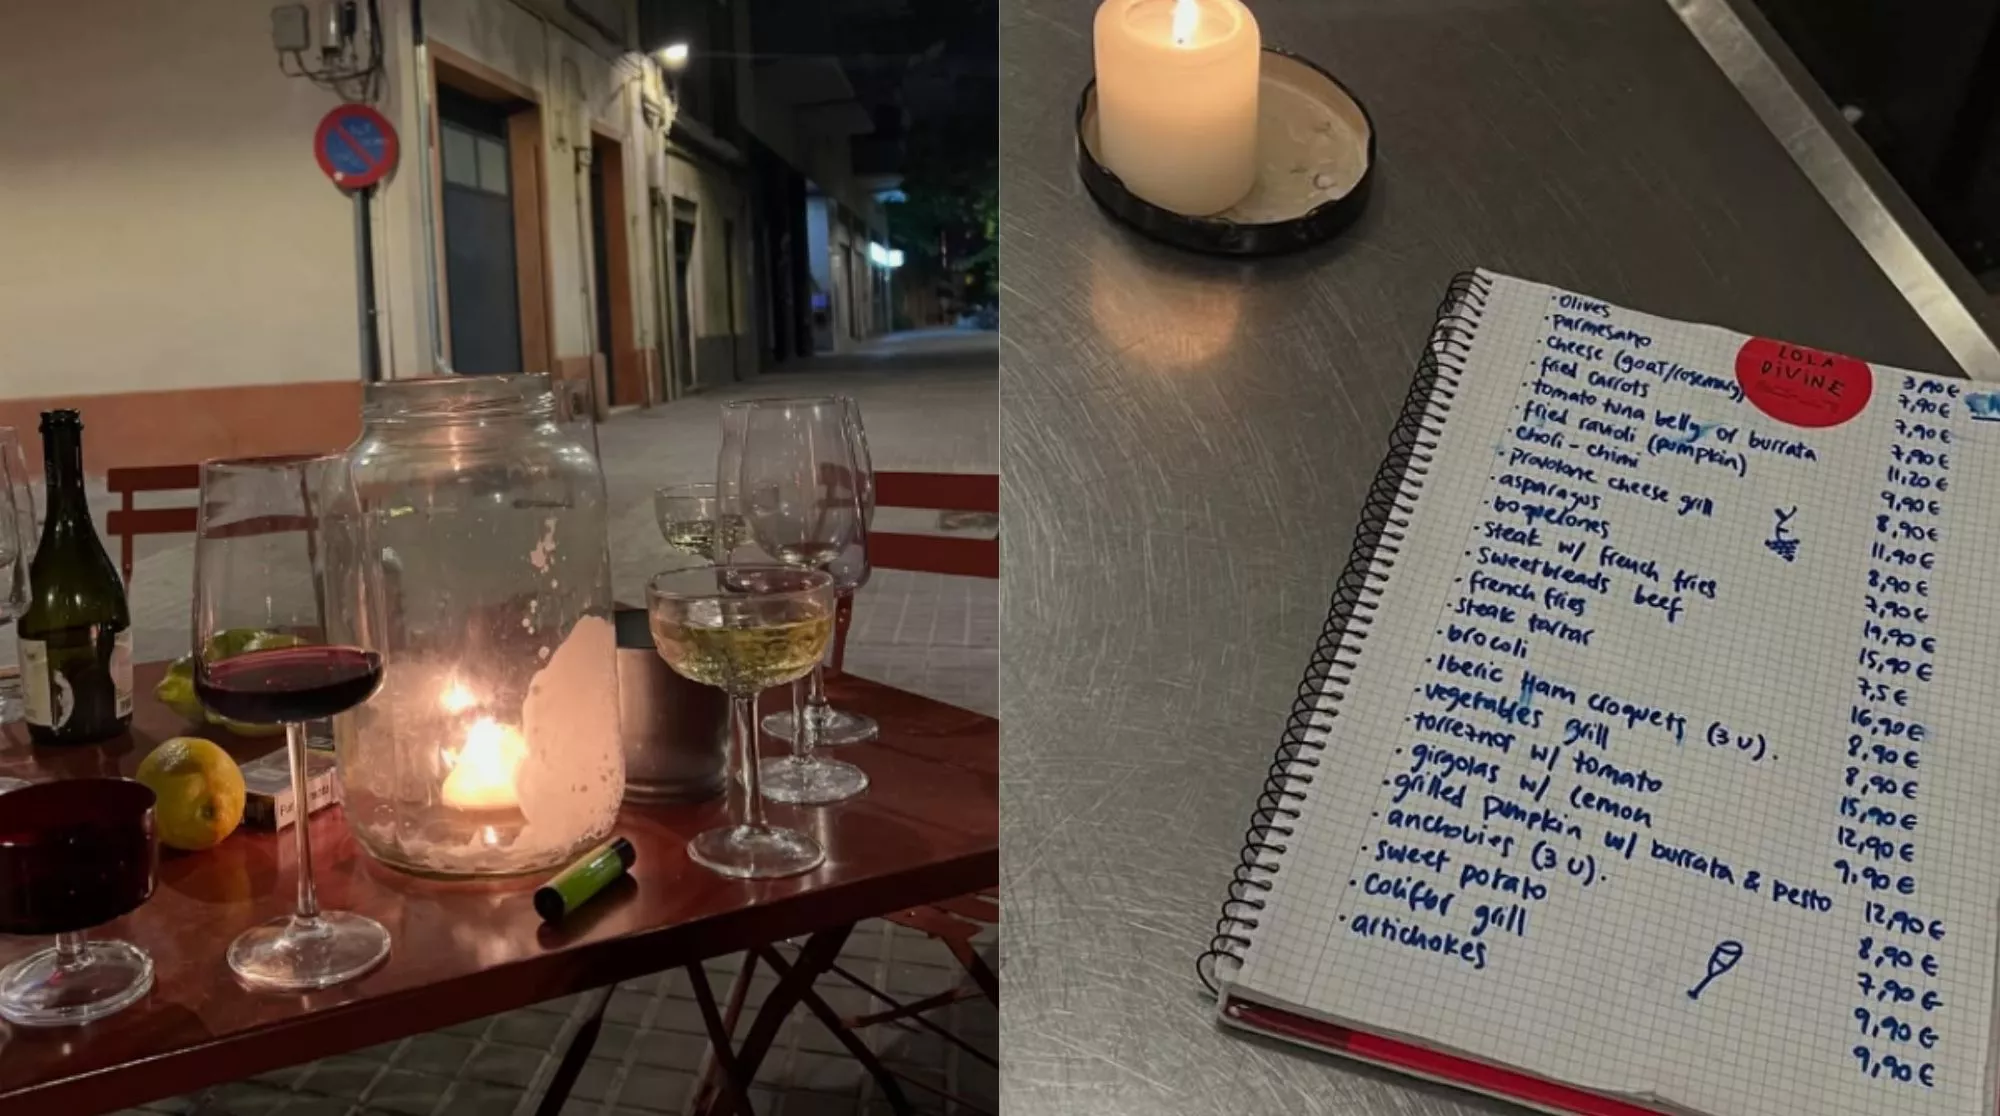 LOLA
DIVINE
· Olives 3,90 €
· Parmesano 7,90 €
· cheese (goat/rosemary) 7,90 €
· fried carrots 7,90 €
· tomato tuna belly or burrata 11,20 €
· fried ravioli (pumpkin) 9,90 €
· choli-chimi 8,90 €
· provolone cheese grill 11,90 €
· asparagus 8,90 €
· boquelones 7,90 €
· steak w/ french fries 19,90 €
· sweetbreads beef 15,90 €
· french fries 7,5 €
· steak tartar 16,90 €
· brocoli 8,90 €
· Iberic Ham croquets (3 U). 8,90 €
· vegetables grill 15,90 €
· torreznos w/ tomato 12,90 €
· girgolas w/ lemon 9,90 €
· grilled pumpkin w/ burrata & pesto 12,90 €
· anchovies (3 U). 8,90 €
· sweet potato 7,90 €
· coliflor grill 9,90 €
· artichokes 9,90 €